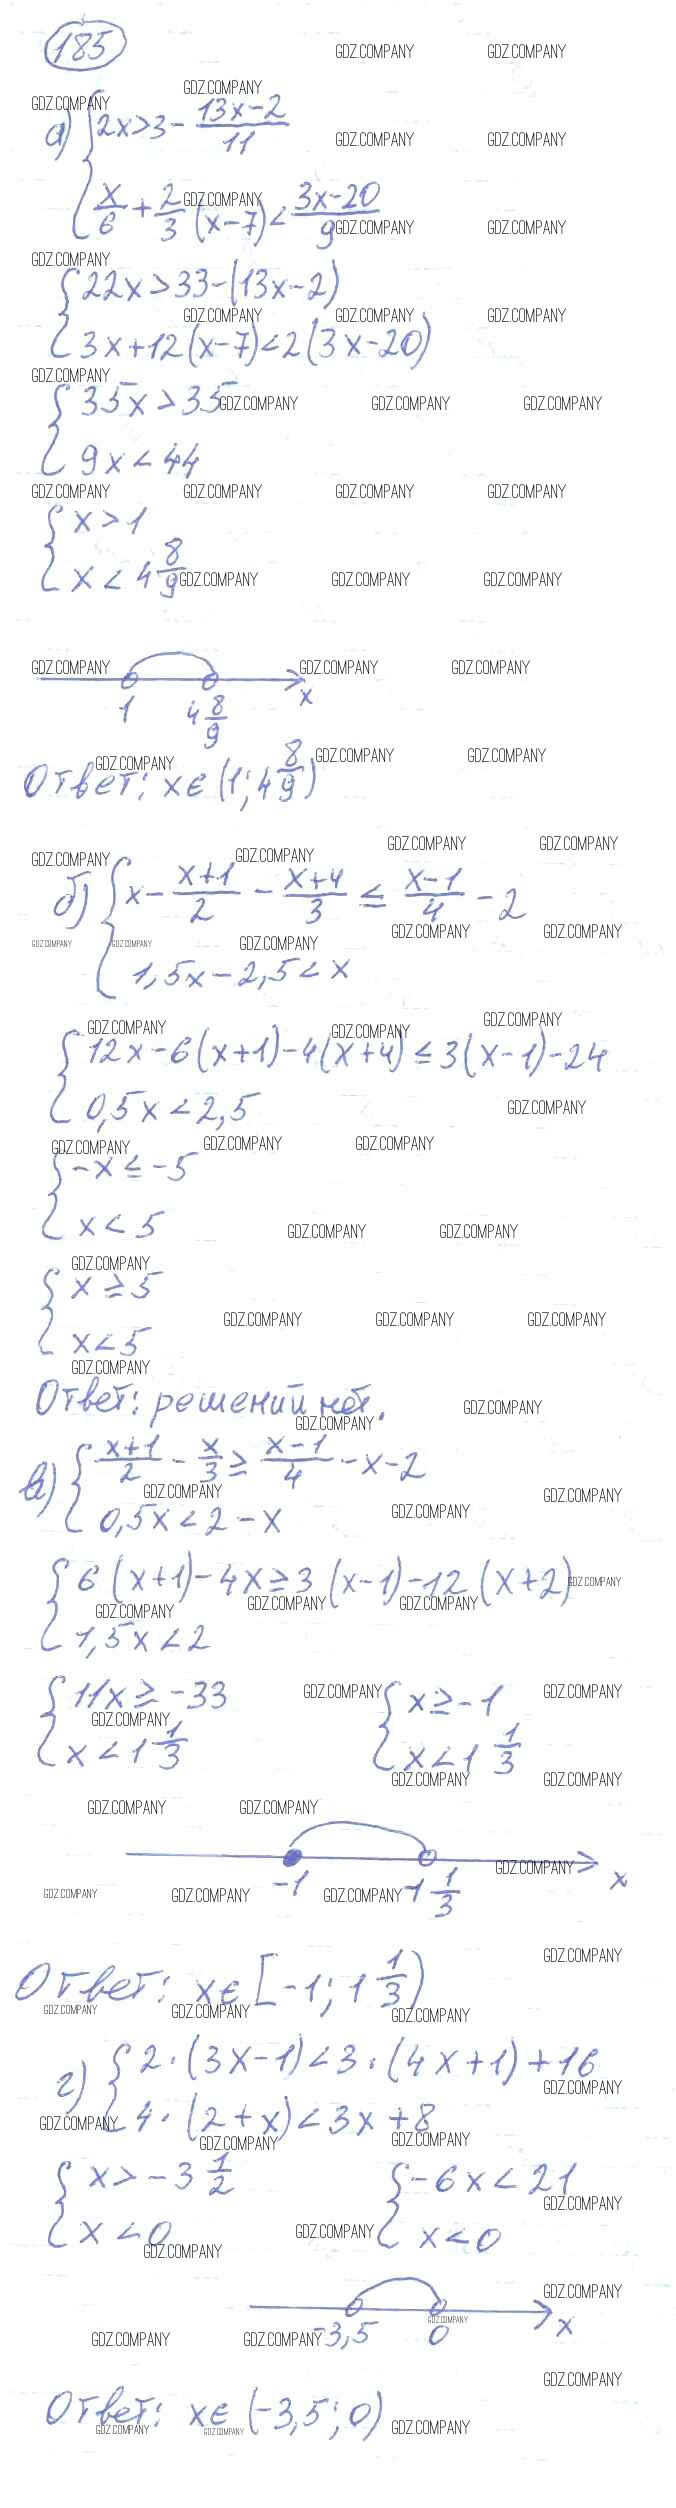 185
а) { 2x > 3 - (13x-2)/11
x/6 + 2/3 (x-7) < (3x-20)/9
{ 22x > 33 - (13x-2)
3x + 12(x-7) < 2(3x-20)
{ 35x > 35
9x < 44
{ x > 1
x < 4 8/9
1 4 8/9 x
Ответ: x ∈ (1; 4 8/9)
б) { x - (x+1)/2 - (x+4)/3 ≤ (x-1)/4 - 2
1,5x - 2,5 < x
{ 12x - 6(x+1) - 4(x+4) ≤ 3(x-1) - 24
0,5x < 2,5
{ -x ≤ -5
x < 5
{ x ≥ 5
x < 5
Ответ: решений нет.
в) { (x+1)/2 - x/3 ≥ (x-1)/4 - x - 2
0,5x < 2 - x
{ 6(x+1) - 4x ≥ 3(x-1) - 12(x+2)
1,5x < 2
{ 11x ≥ -33 { x ≥ -1
x < 1 1/3 x < 1 1/3
-1 1 1/3 x
Ответ: x ∈ [-1; 1 1/3)
г) { 2·(3x-1) < 3·(4x+1) + 16
4·(2+x) < 3x + 8
{ x > -3 1/2 { -6x < 21
x < 0 x < 0
-3,5 0 x
Ответ: x ∈ (-3,5; 0)
GDZ.COMPANY